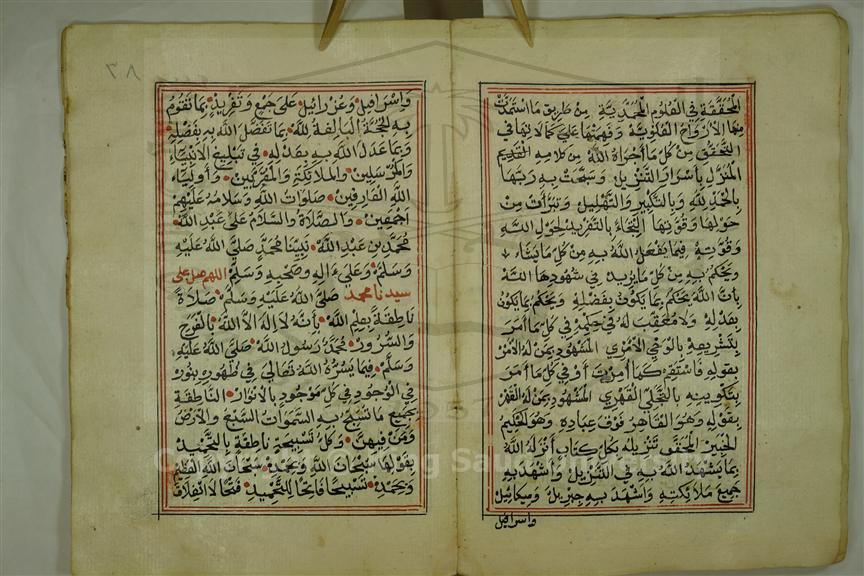 المحققة في العلوم المحمدية من طريق ما استمدت
منها الأرواح العلوية وفهمتها على كمالاتها في
التحقق من كل ما أحواه الله من كلامه القديم
المنزل بأسرار التنزيل وسبحت به ربها
بالحمد لله وبالتكبير والتهليل وتبرأت من
حولها وقوتها التجاء بالتفريد لحول الله
وقوته فيما يفعل الله به من كل ما يشاء
ويحكم به من كل ما يريد في شهودها الله
بأن الله يحكم بما يكون بفضله ويحكم بما يكون
بعدله ولا معقب له في حكمه في كل ما أمر
بتشريعه بالوحي الأمري المشهود بمن له الأمر
بقوله فاستقم كما أمرت أو في كل ما أمر
بتكوينه بالتجلي القهري المشهود بمن له القهر
بقوله وهو القاهر فوق عباده وهو الحكيم
الخبير المحقق تنزيله بكل كتاب أنزله الله
بما يشهد الله به في التنزيل وأشهد به
جميع ملائكته وأشهد به جبريل وميكائيل
واسرافيل
٣٨
وإسرافيل وعزرائيل على جمع وتفريد بما تقوم
به الحجة البالغة لله بما تفضل الله به بفضله
وبما عدل الله به بعدله في تبليغ الأنبياء
والمرسلين والملائكة والمقربين وأولياء
الله العارفين صلوات الله وسلامه عليهم
أجمعين والصلاة والسلام على عبد الله
محمد بن عبد الله نبينا محمد صلى الله عليه
وسلم وعلى ءاله وصحبه وسلم اللهم صل على
سيدنا محمد صلى الله عليه وسلم صلاة
ناطقة بعلم الله بأنه لا إله إلا الله بالفرح
والسرور محمد رسول الله صلى الله عليه
وسلم فيما يسره الله تعالى في ظهوره بنوره
في الوجود في كل موجود بالأنوار الناطقة
بجميع ما تسبح به السموات السبع والأرض
ومن فيهن وكل تسبيحة ناطقة بالتحميد
بقولها سبحان الله وبحمده سبحان الله العظيم
وبحمده تسبيحا فاتحا للتحميد فتحا لا انغلاقا